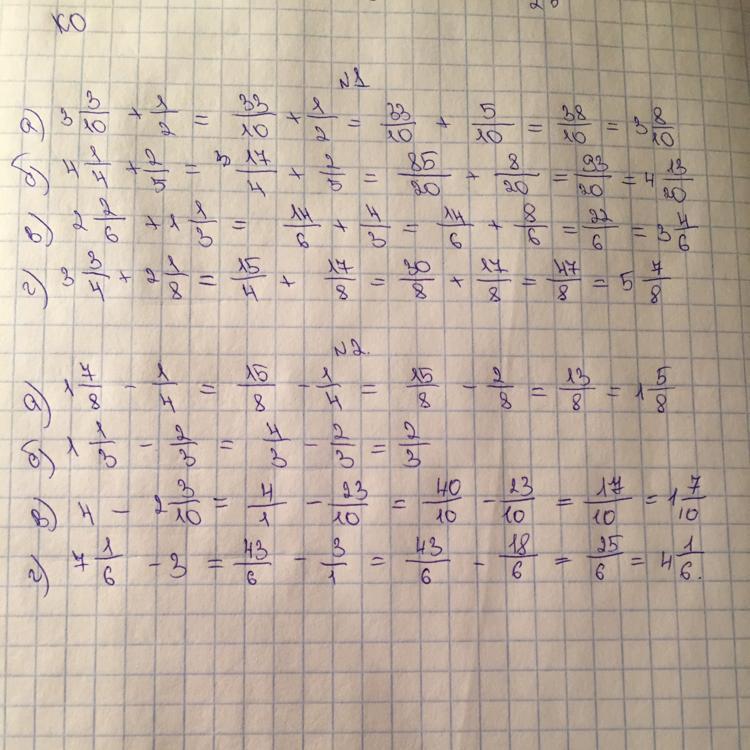 КО
№1
а) 3 3/10 + 1/2 = 33/10 + 1/2 = 33/10 + 5/10 = 38/10 = 3 8/10
б) 4 1/4 + 2/5 = 17/4 + 2/5 = 85/20 + 8/20 = 93/20 = 4 13/20
в) 2 2/6 + 1 1/3 = 14/6 + 4/3 = 14/6 + 8/6 = 22/6 = 3 4/6
г) 3 3/4 + 2 1/8 = 15/4 + 17/8 = 30/8 + 17/8 = 47/8 = 5 7/8
№2.
а) 1 7/8 - 1/4 = 15/8 - 1/4 = 15/8 - 2/8 = 13/8 = 1 5/8
б) 1 1/3 - 2/3 = 4/3 - 2/3 = 2/3
в) 4 - 2 3/10 = 4/1 - 23/10 = 40/10 - 23/10 = 17/10 = 1 7/10
г) 7 1/6 - 3 = 43/6 - 3/1 = 43/6 - 18/6 = 25/6 = 4 1/6.